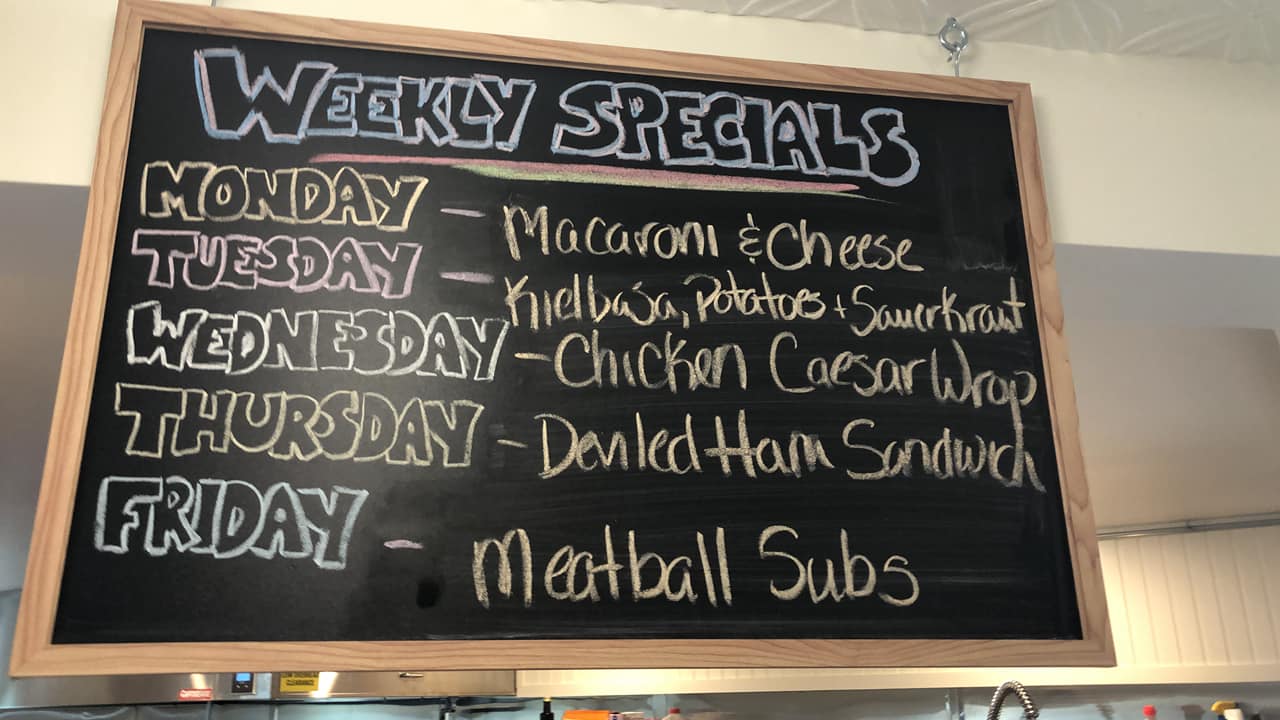 WEEKLY SPECIALS
MONDAY - Macaroni & Cheese
TUESDAY - Kielbasa, Potatoes + Sauerkraut
WEDNESDAY - Chicken Caesar Wrap
THURSDAY - Deviled Ham Sandwich
FRIDAY - Meatball Subs
CLEARANCE